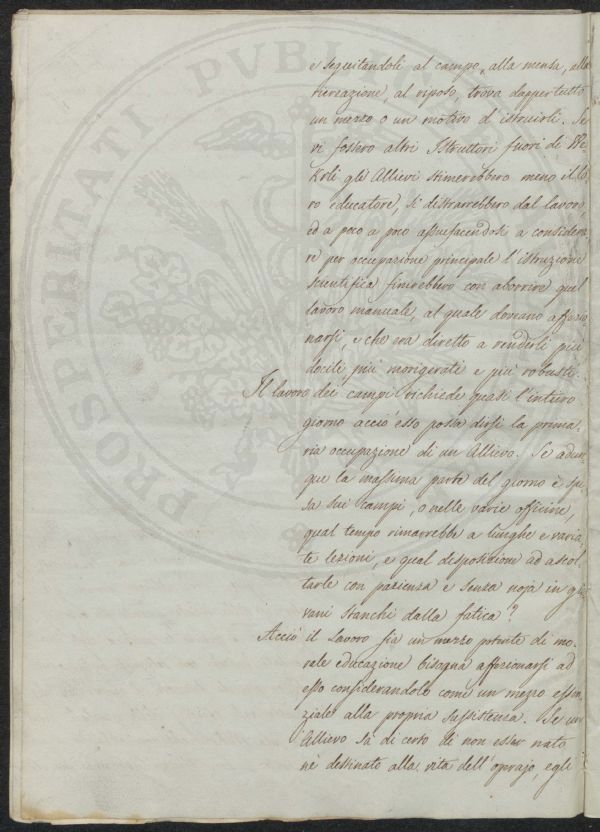 e seguitandoli al campo, alla mensa, alla
ricreazione, al riposo, trova dappertutto
un mezzo o un motivo d'istruirli. Se
vi fossero altri Istruttori fuori di We-
krli gli Allievi stimerebbero meno il lo
ro educatore, si distrarrebbero dal lavoro,
ed a poco a poco assuefacendosi a considera
re per occupazione principale l'istruzione
scientifica finirebbero con aborrire quel
lavoro manuale, al quale doveano affezio
narsi, e che era diretto a renderli più
docili più morigerati e più robusti.
Il lavoro dei campi richiede quasi l'intiero
giorno acciò esso possa dirsi la prima-
ria occupazione di un Allievo. Se adun
que la massima parte del giorno è spe
sa sui campi, o nelle varie officine,
qual tempo rimarrebbe a lunghe e varia
te lezioni, e qual disposizione ad ascol
tarle con pazienza e senza noja in gio
vani stanchi dalla fatica?
Acciò il lavoro sia un mezzo potente di mo-
rale educazione bisogna affezionarsi ad
esso considerandolo come un mezzo essen
ziale alla propria sussistenza. Se un
Allievo sa di certo di non esser nato
nè destinato alla vita dell'oprajo, egli
PROSPERITATI PUBLI